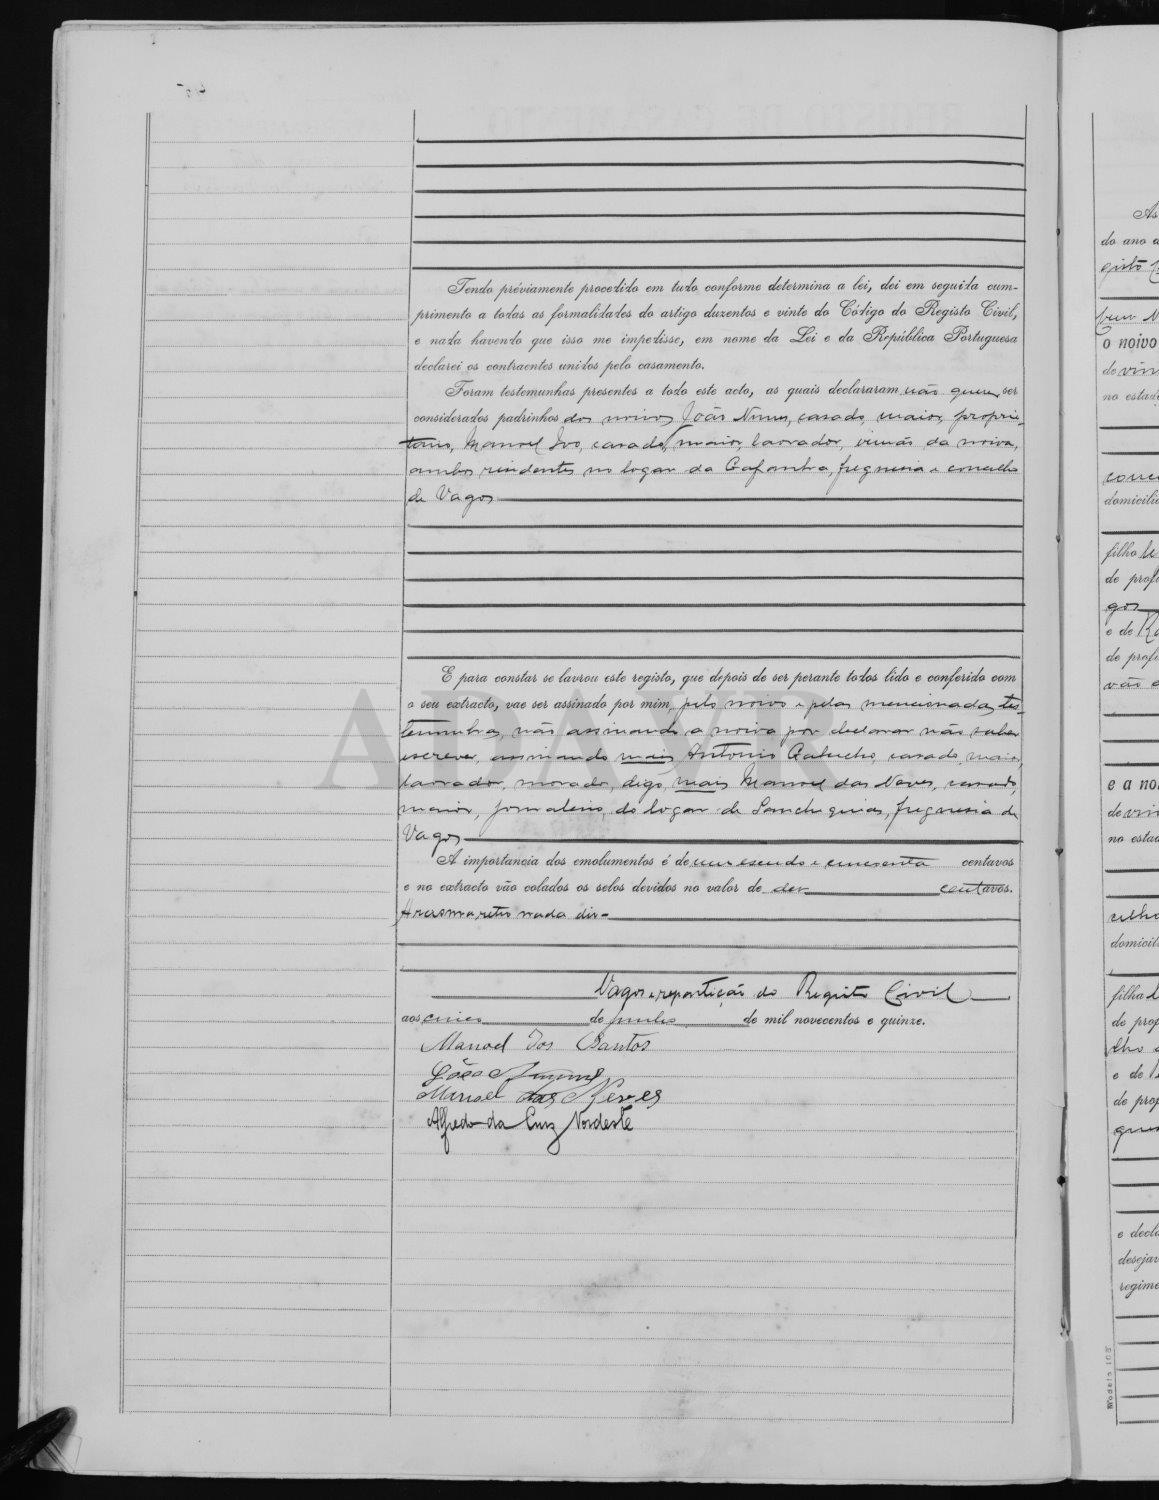 Tendo préviamente procedido em tudo conforme determina a lei, dei em seguida cum-
primento a todas as formalidades do artigo duzentos e vinte do Código do Registo Civil,
e nada havendo que isso me impedisse, em nome da Lei e da República Portuguesa
declarei os contraentes unidos pelo casamento.
Foram testemunhas presentes a todo este acto, as quais declararam não querer ser
considerados padrinhos dos noivos João Nunes, casado, maior, proprie-
tario, Manoel Ivo, casado, maior, lavrador, irmão da noiva,
ambos residentes no logar da Gafanha, freguesia e concelho
de Vagos
E para constar se lavrou este registo, que depois de ser perante todos lido e conferido com
o seu extracto, vae ser assinado por mim, pelo noivo e pelas mencionadas tes-
temunhas, não assinando a noiva por declarar não saber
escrever, assinando mais Antonio casado, maior,
lavrador, morado, digo, mais Manoel das Neves, casado,
maior, jornaleiro, do logar de Sanchequias, freguesia de
Vagos
A importancia dos emolumentos é de um escudo e cincoenta centavos
e no extracto vão colados os selos devidos no valor de dez centavos.
A rasura retro nada diz-
Vagos e repartição do Registo Civil
aos cinco de junho de mil novecentos e quinze.
Manoel dos Santos
João Nunes
Manoel das Neves
Alfredo da Cruz Nordeste
ADAVR
As
do ano
gisto
o noivo
de vin
no estad
domicili
filho
de prof
gos
e de
de prof
e a no
de vin
no estad
domicil
filha
de prof
e de
de prof
e decl
desejav
regime
Modelo 105